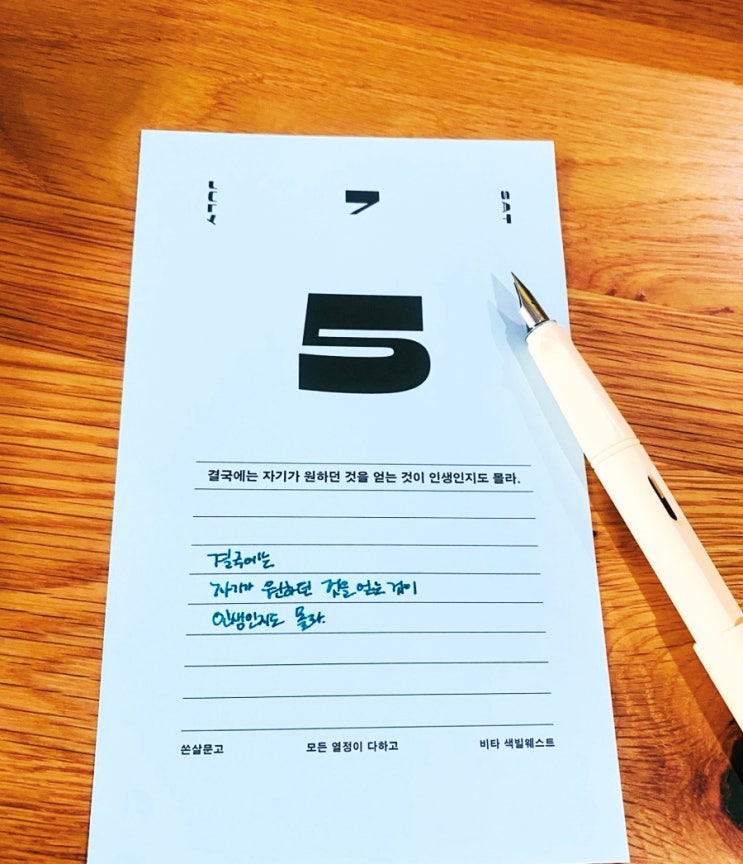 JULY 7 SAT
5
결국에는 자기가 원하던 것을 얻는 것이 인생인지도 몰라.
결국에는
자기가 원하던 것을 얻는 것이
인생인지도 몰라.
쏜살문고 모든 열정이 다하고 비타 색빌웨스트